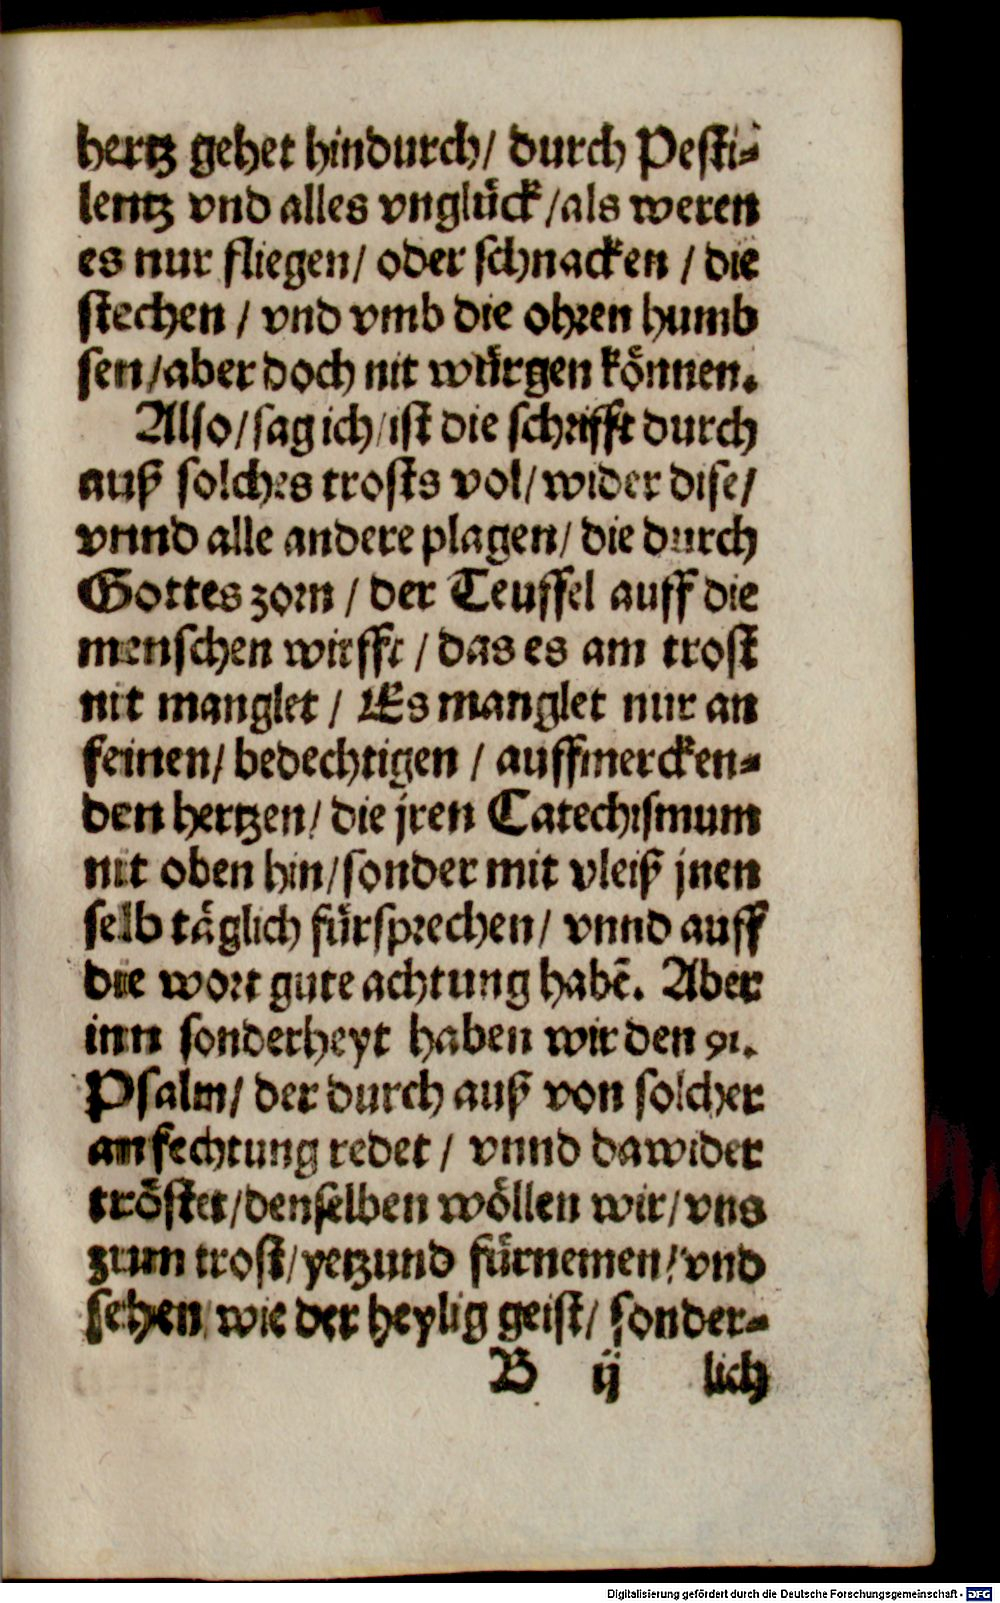 hertz gehet hindurch/ durch Pesti-
lentz vnd alles vnglück/als weren
es nur fliegen/ oder schnacken / die
stechen / vnd vmb die ohren humb
sen/aber doch nit würgen können.
Also/sag ich/ist die schrifft durch
auß solches trosts vol/wider dise/
vnnd alle andere plagen/ die durch
Gottes zorn / der Teuffel auff die
menschen wirfft / das es am trost
nit manglet / Es manglet nur an
feinen/ bedechtigen / auffmercken-
den hertzen/ die jren Catechismum
nit oben hin/sonder mit vleiß jnen
selb täglich fürsprechen/ vnnd auff
die wort gute achtung habẽ. Aber
inn sonderheyt haben wir den 91.
Psalm/ der durch auß von solcher
anfechtung redet / vnnd dawider
tröstet/denselben wöllen wir/vns
zum trost/yetzund fürnemen/vnd
sehen/wie der heylig geist/ sonder-
B ij lich
Digitalisierung gefördert durch die Deutsche Forschungsgemeinschaft - DFG